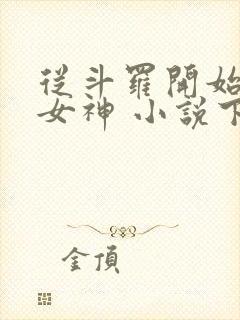 從斗羅開始
女神 小說下
金頂